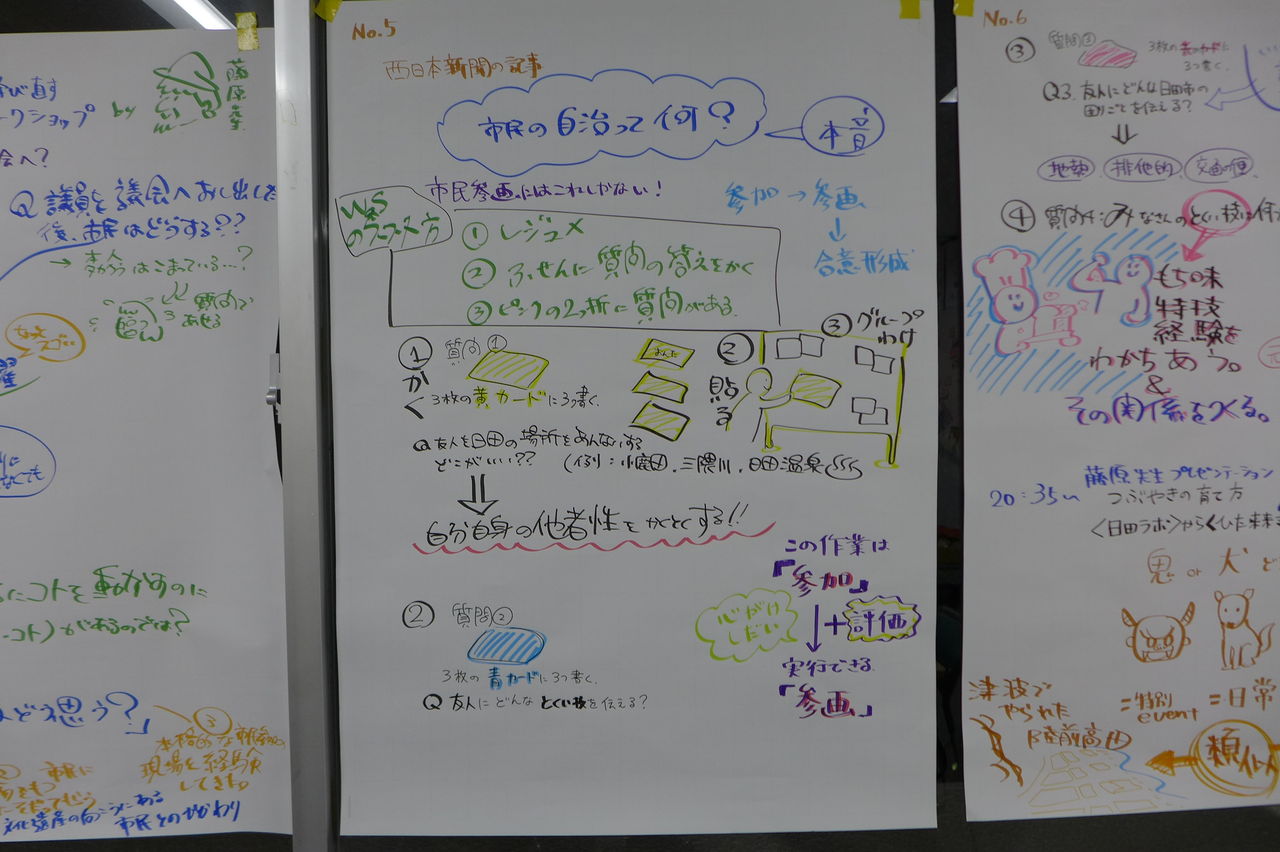 び直す
ークショップ
by
藤原先生
会へ?
Q 議員を議会へおし出した
後、市民はどうする??
→ 本人
はこまっている…?
質問で
あせる
コトを動かすのに
コト)があるのでは?
どう思う?」
③
現場を経験
してきた
市民に
市民とのかかわり
No.5
西日本新聞の記事
市民の自治って何?
本音
市民参画にはこれしかない!
WSのススメ方
① レジュメ
② ふせんに質問の答えをかく
③ ピンクの2つ折に質問がある。
参加→参画
↓
合意形成
① 質問①
かく
3枚の黄カードに3つ書く。
② 貼る
③ グループわけ
Q 友人を日田の場所をあんないする
どこがいい?? (例り:小鹿田、三隈川、日田温泉
⇓
自分自身の他者性をかくとくする!!
② 質問②
3枚の青カードに3つ書く。
Q 友人にどんなとくい技を伝える?
この作業は
「参加」
心がけしだい
↓+評価
実行できる
「参画」
No.6
③ 質問③
3枚の赤カードに
3つ書く。
Q3. 友人にどんな日田市の
困りごとを伝える?
⇓
排他的
交通の便
④ 質問④:みなさんのとくい技は何
もちの味
特技
経験を
わかちあう。
&
その関係をつくる。
20:35~
藤原先生プレゼンテーション
つぶやきの育て方
<日田ラボ>から
鬼 or 犬
津波で
やられた
陸前高田
=特別
event
=日常
類似